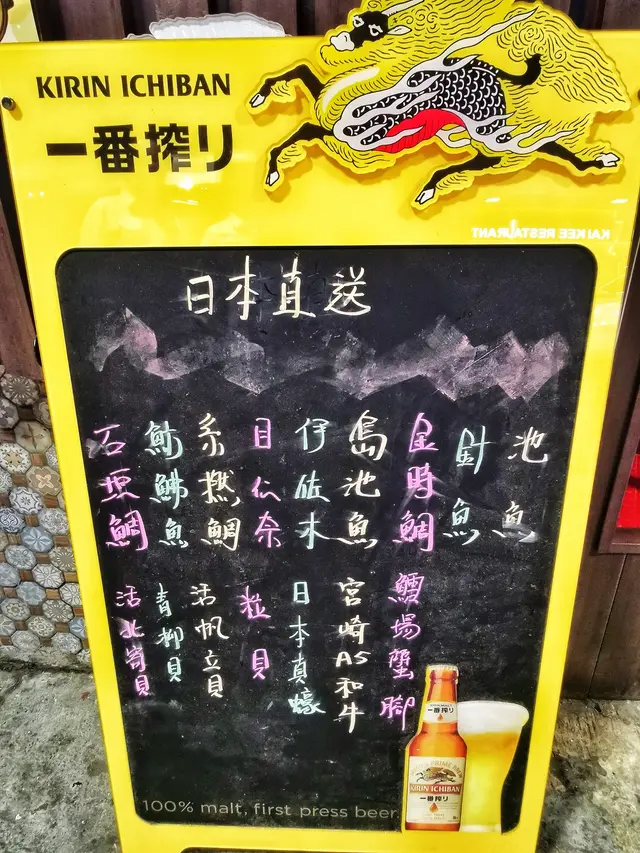 KIRIN ICHIBAN
一番搾り
KAI KEE RESTAURANT
日本直送
池魚
針魚
金時鯛
島池魚
伊佐木
目仁奈
糸撚鯛
魴鮄魚
石鯛
鱈場蟹腳
宮崎A5和牛
日本真蠔
粒貝
活帆立貝
青柳貝
活北寄貝
一番搾り
KIRIN ICHIBAN
一番搾り
100% malt, first press beer.